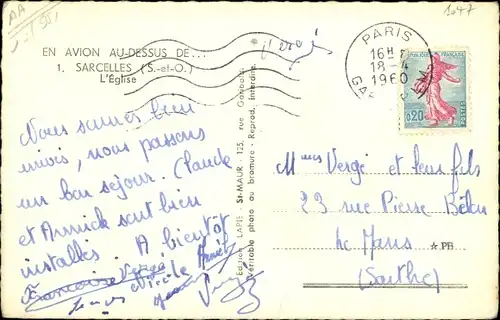 AA
1047
EN AVION AU-DESSUS DE...
1. SARCELLES (S.-et-O.)
L'Église
PARIS
16H
18-4
1960
GA
RÉPUBLIQUE FRANÇAISE
0,20
POSTES
Edition LAPIE St-MAUR - 125, rue Garibaldi
Véritable photo au bromure - Reprod. Interdite
Nous sommes bien
, nous passons
un bon séjour. Claude
et Annick sont bien
installés. A bientôt
Françoise Vergé
Nicole
Mmes Vergé et leur fils
23 rue Pierre Belon
Le Mans
(Sarthe)
★ PB